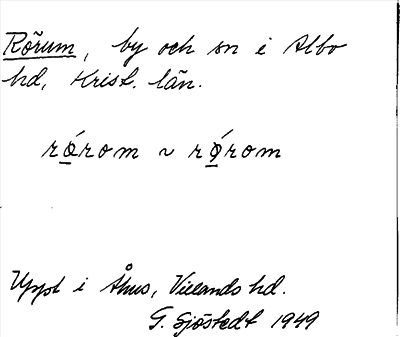 Rõrum, by och sn i Albo
hd, Krist. län.
rǫ́rom ~ rǫ́rom
Uppt i Åhus, Villands hd.
G. Sjöstedt 1949